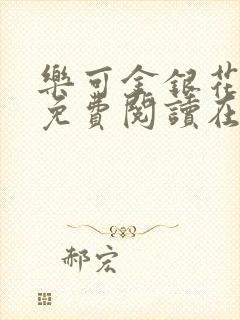 樂可金銀花
免費閱讀在
郝宏